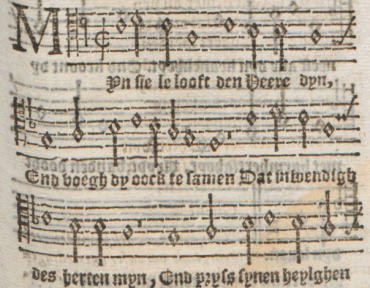 MYn sie le looft den Heere dyn,
End voegh dy oock te samen Dat inwendigh
des herten myn, End pryss synen heylghen